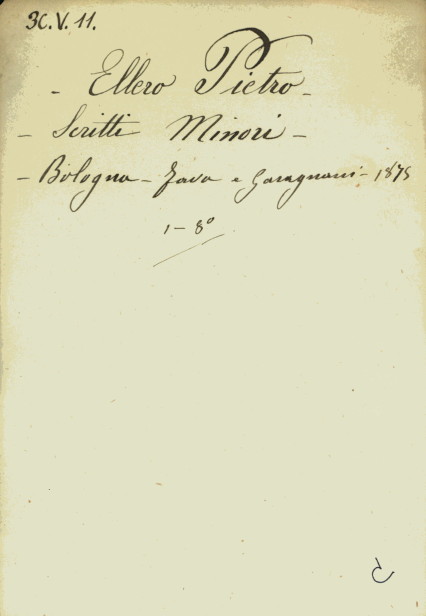 3C.V.11.
- Ellero Pietro -
- Scritti Minori -
- Bologna - Fava e Garagnani - 1875
1 - 8°